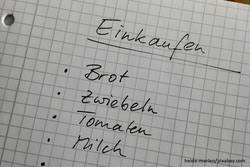 Einkaufen
• Brot
• Zwiebeln
• Tomaten
• Milch
heike marlau/pixabay.com